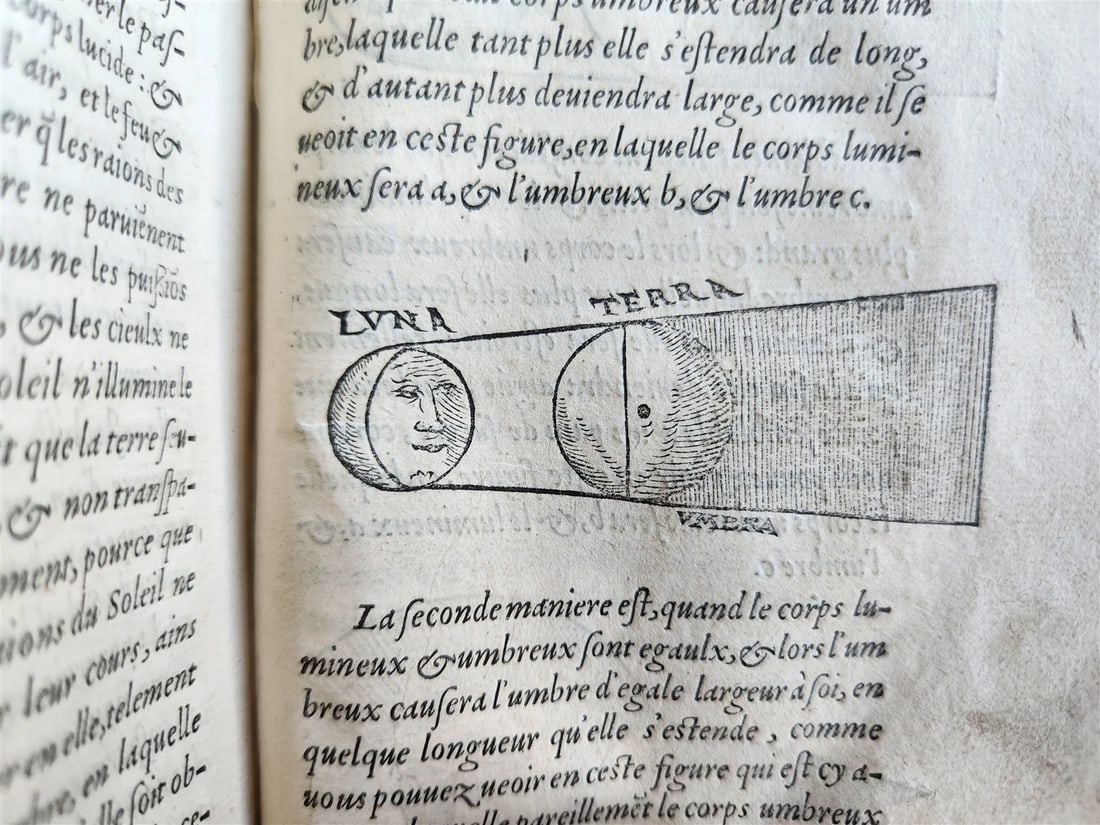 er le pas-
corps lucide: &
l'air, et le feu &
er q̃ les raions des
re ne paruiẽnent
ous ne les puissiõs
, & les cieulx ne
oleil n'illumine le
t que la terre seu-
& non transpa-
ment, pource que
ions du Soleil ne
r leur cours, ains
r en elle, telement
bre, en laquelle
lle soit ob-
corps umbreux causera un um
bre, laquelle tant plus elle s'estendra de long,
& d'autant plus deuiendra large, comme il se
ueoit en ceste figure, en laquelle le corps lumi-
neux sera a, & l'umbreux b, & l'umbre c.
LVNA
TERRA
VMBRA
La seconde maniere est, quand le corps lu-
mineux & umbreux sont egaulx, & lors l'um
breux causera l'umbre d'egale largeur à soi, en
quelque longueur qu'elle s'estende, comme
uous pouuez ueoir en ceste figure qui est cy a-
pareillemẽt le corps umbreux